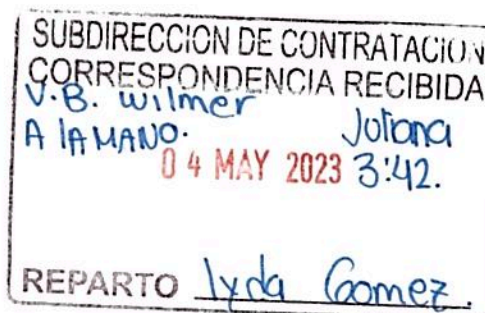 SUBDIRECCION DE CONTRATACION
CORRESPONDENCIA RECIBIDA
V.B. wilmer
A lA MANO. Juliana
04 MAY 2023 3:42.
REPARTO lyda Gomez.